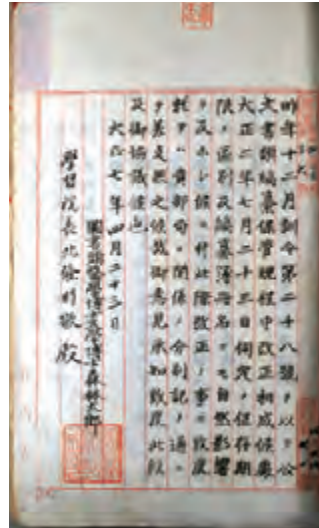 昨年十二月訓令第二十八號ヲ以テ公
文書類編纂保管規程中改正相成候處
大正二年七月二十三日伺定ノ保存期
限ノ區別及編纂簿冊名ノ モ自然影響
ヲ及ホシ候ニ付此際改正ノ事ニ致度
就テハ貴部局ニ關係ノ分別記ノ通ニ
テ差支無之候哉御意見承知致度此段
及御協議候也
大正七年四月二十三日
圖書頭醫學博士文學博士森林太郎
學習院長北條時敬殿